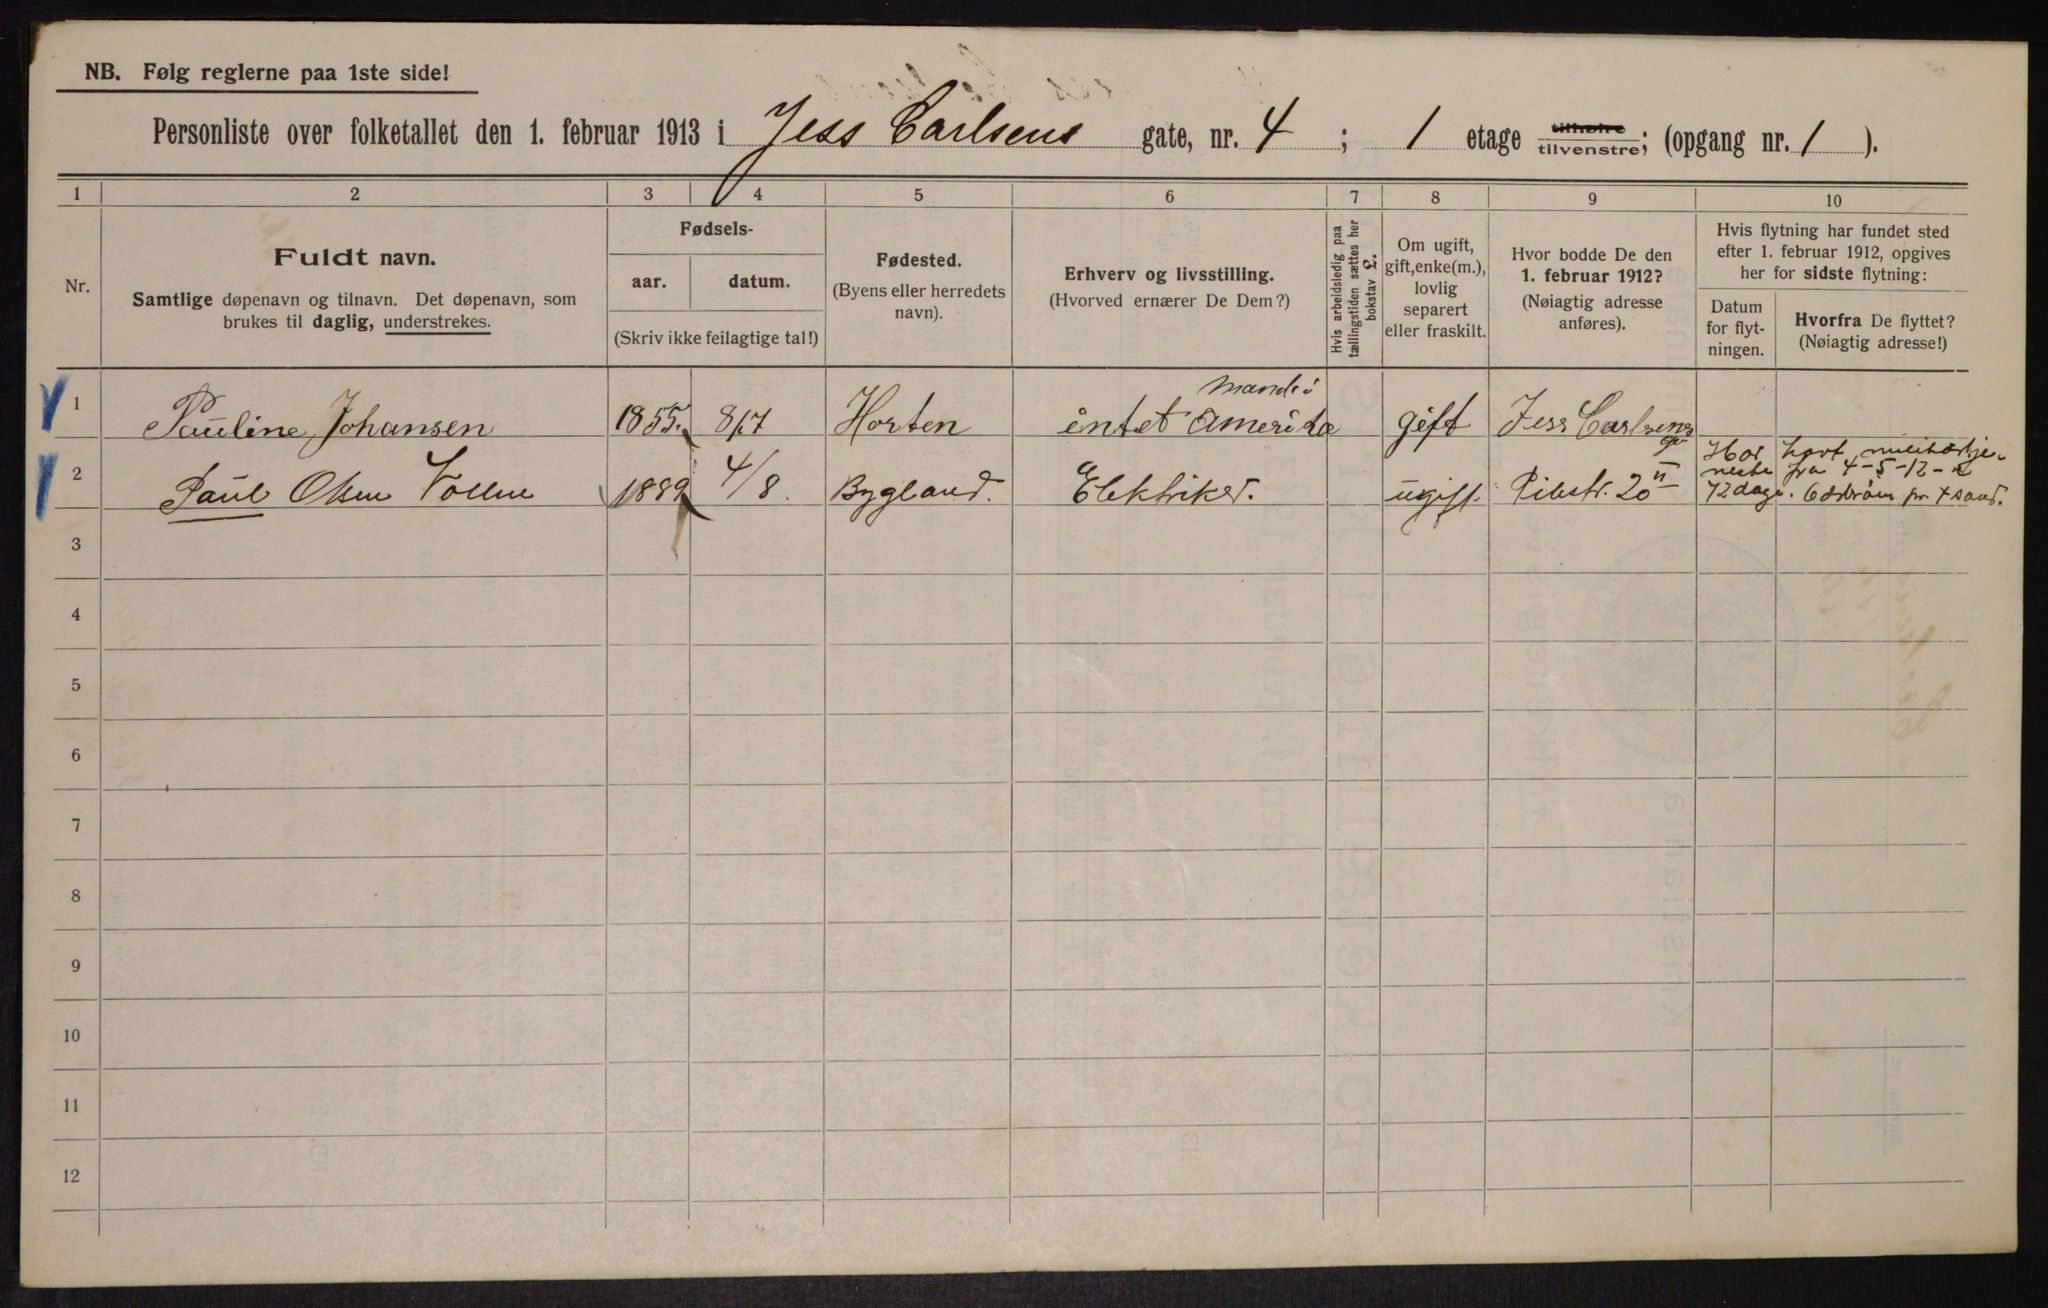 NB. Følg reglerne paa 1ste side!
Personliste over folketallet den 1. februar 1913 i Jess Carlsens gate, nr. 4 ; 1 etage tilhøire tilvenstre; (opgang nr. 1 ).
1 2 3 4 5 6 7 8 9 10
Nr.
Fuldt navn.
Samtlige døpenavn og tilnavn. Det døpenavn, som
brukes til daglig, understrekes.
Fødsels-
aar. datum.
(Skriv ikke feilagtige tal!)
Fødested.
(Byens eller herredets
navn).
Erhverv og livsstilling.
(Hvorved ernærer De Dem?)
Hvis arbeidsledig paa
tællingstiden sættes her
bokstav L.
Om ugift,
gift, enke(m.),
lovlig
separert
eller fraskilt.
Hvor bodde De den
1. februar 1912?
(Nøiagtig adresse
anføres).
Hvis flytning har fundet sted
efter 1. februar 1912, opgives
her for sidste flytning:
Datum
for flyt-
ningen.
Hvorfra De flyttet?
(Nøiagtig adresse!)
Mand i
1 Pauline Johansen 1855. 8/7 Horten intet Amerika gift Jess Carlsens
2 Paul Olsen Vollen 1889 4/8. Bygland. Elektriker. ugift. Pilestr. 20 II
Har havt militærtje-
neste fra 4-5-12-
72 dage.
3
4
5
6
7
8
9
10
11
12